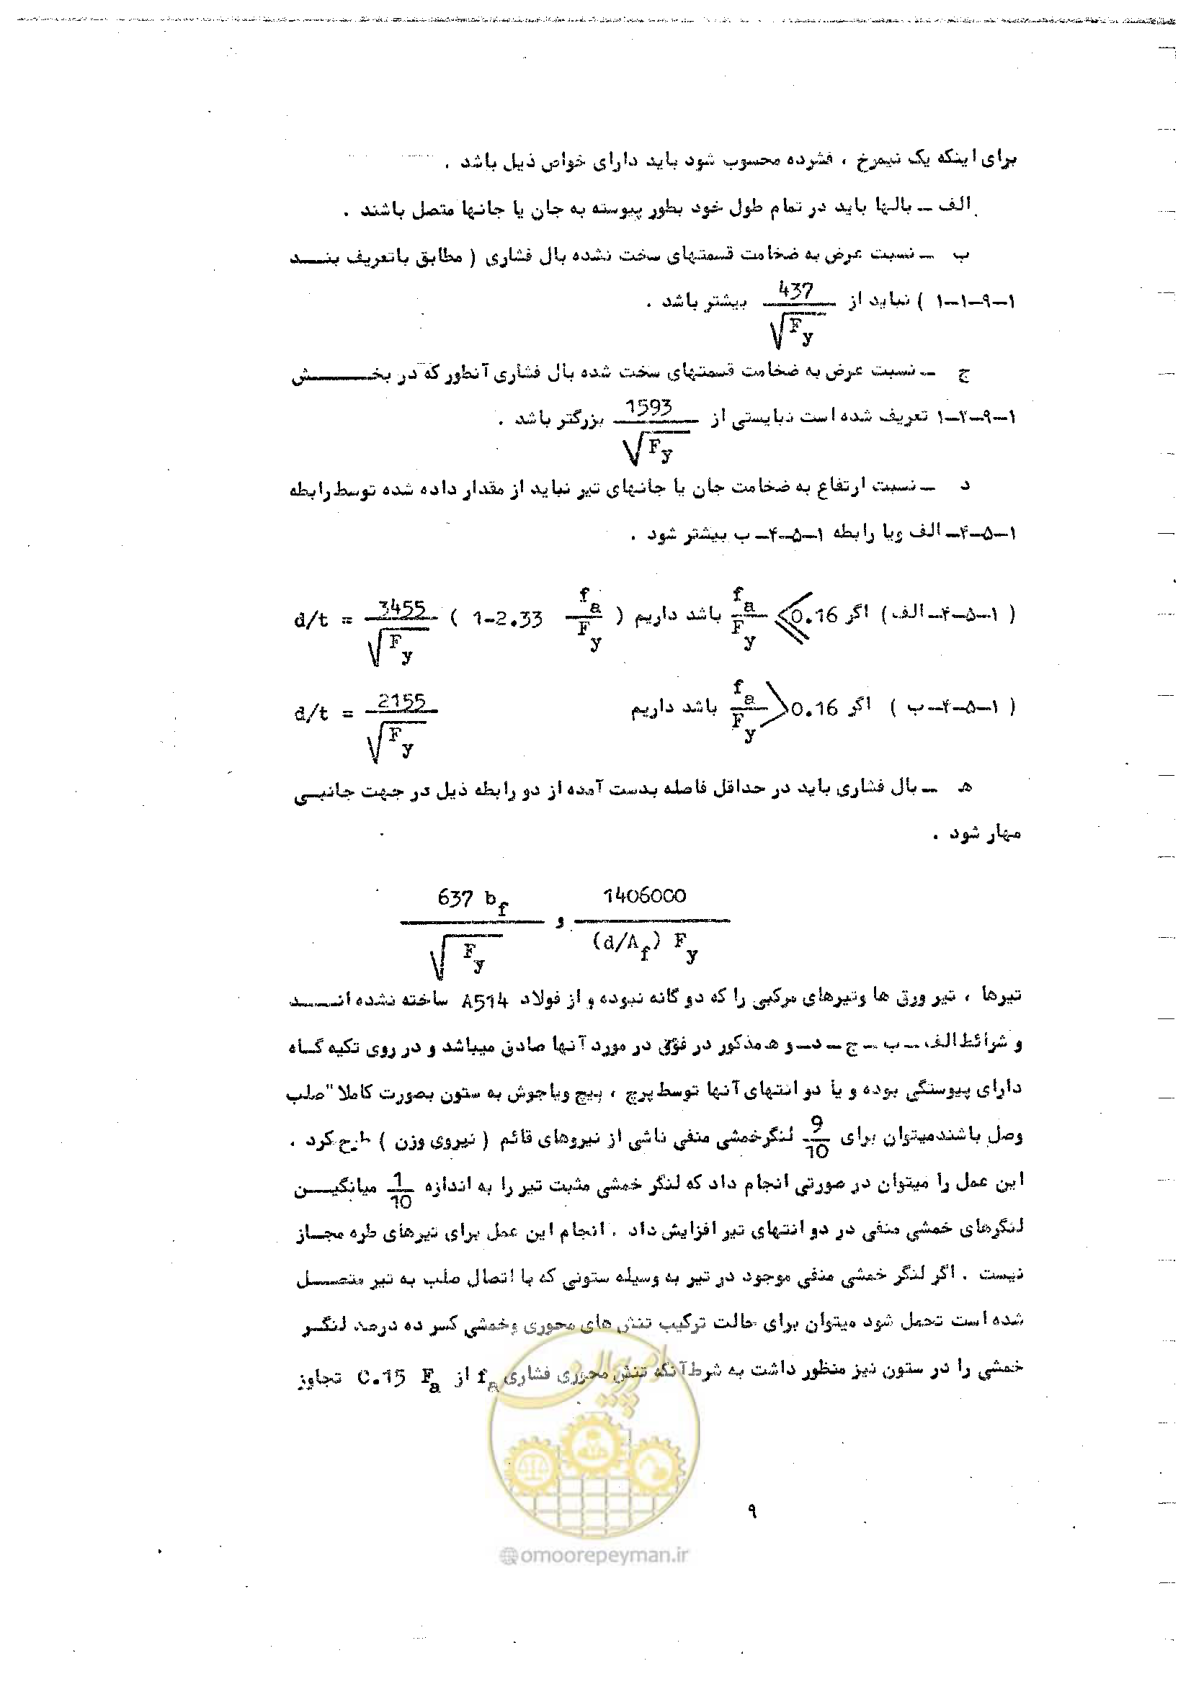 برای اینکه یک نیمرخ ، فشرده محسوب شود باید دارای خواص ذیل باشد .
الف ـ بالها باید در تمام طول خود بطور پیوسته به جان یا جانها متصل باشند .
ب ـ نسبت عرض به ضخامت قسمتهای سخت نشده بال فشاری ( مطابق باتعریف بنـــد
۱ـ۹ـ۱ـ۱ ) نباید از 437/√Fy بیشتر باشد .
ج ـ نسبت عرض به ضخامت قسمتهای سخت شده بال فشاری آنطور که در بخــــش
۱ـ۹ـ۲ـ۱ تعریف شده است نبایستی از 1593/√Fy بزرگتر باشد .
د ـ نسبت ارتفاع به ضخامت جان یا جانهای تیر نباید از مقدار داده شده توسط رابطه
۱ـ۵ـ۴ـ الف ویا رابطه ۱ـ۵ـ۴ـ ب بیشتر شود .
( ۱ـ۵ـ۴ـ الف ) اگر fa/Fy ≤ 0.16 باشد داریم d/t = 3455/√Fy ( 1-2.33 fa/Fy )
( ۱ـ۵ـ۴ـ ب ) اگر fa/Fy > 0.16 باشد داریم d/t = 2155/√Fy
ه ـ بال فشاری باید در حداقل فاصله بدست آمده از دو رابطه ذیل در جهت جانبـی
مهار شود .
637 bf/√Fy و 1406000/(d/Af) Fy
تیرها ، تیر ورق ها وتیرهای مرکبی را که دو گانه نبوده و از فولاد A514 ساخته نشده انـــد
و شرائط الف ـ ب ـ ج ـ د ـ و ه مذکور در فوق در مورد آنها صادق میباشد و در روی تکیه گـاه
دارای پیوستگی بوده و یا دو انتهای آنها توسط پرچ ، پیچ ویاجوش به ستون بصورت کاملا" صلب
وصل باشندمیتوان برای 9/10 لنگرخمشی منفی ناشی از نیروهای قائم ( نیروی وزن ) طرح کرد .
این عمل را میتوان در صورتی انجام داد که لنگر خمشی مثبت تیر را به اندازه 1/10 میانگیــن
لنگرهای خمشی منفی در دو انتهای تیر افزایش داد . انجام این عمل برای تیرهای طره مجـاز
نیست . اگر لنگر خمشی منفی موجود در تیر به وسیله ستونی که با اتصال صلب به تیر متصـــل
شده است تحمل شود میتوان برای حالت ترکیب تنش های محوری وخمشی کسر ده درصد لنگــر
خمشی را در ستون نیز منظور داشت به شرط آنکه تنش محوری فشاری fa از 0.15 Fa تجاوز
۹
@omoorepeyman.ir